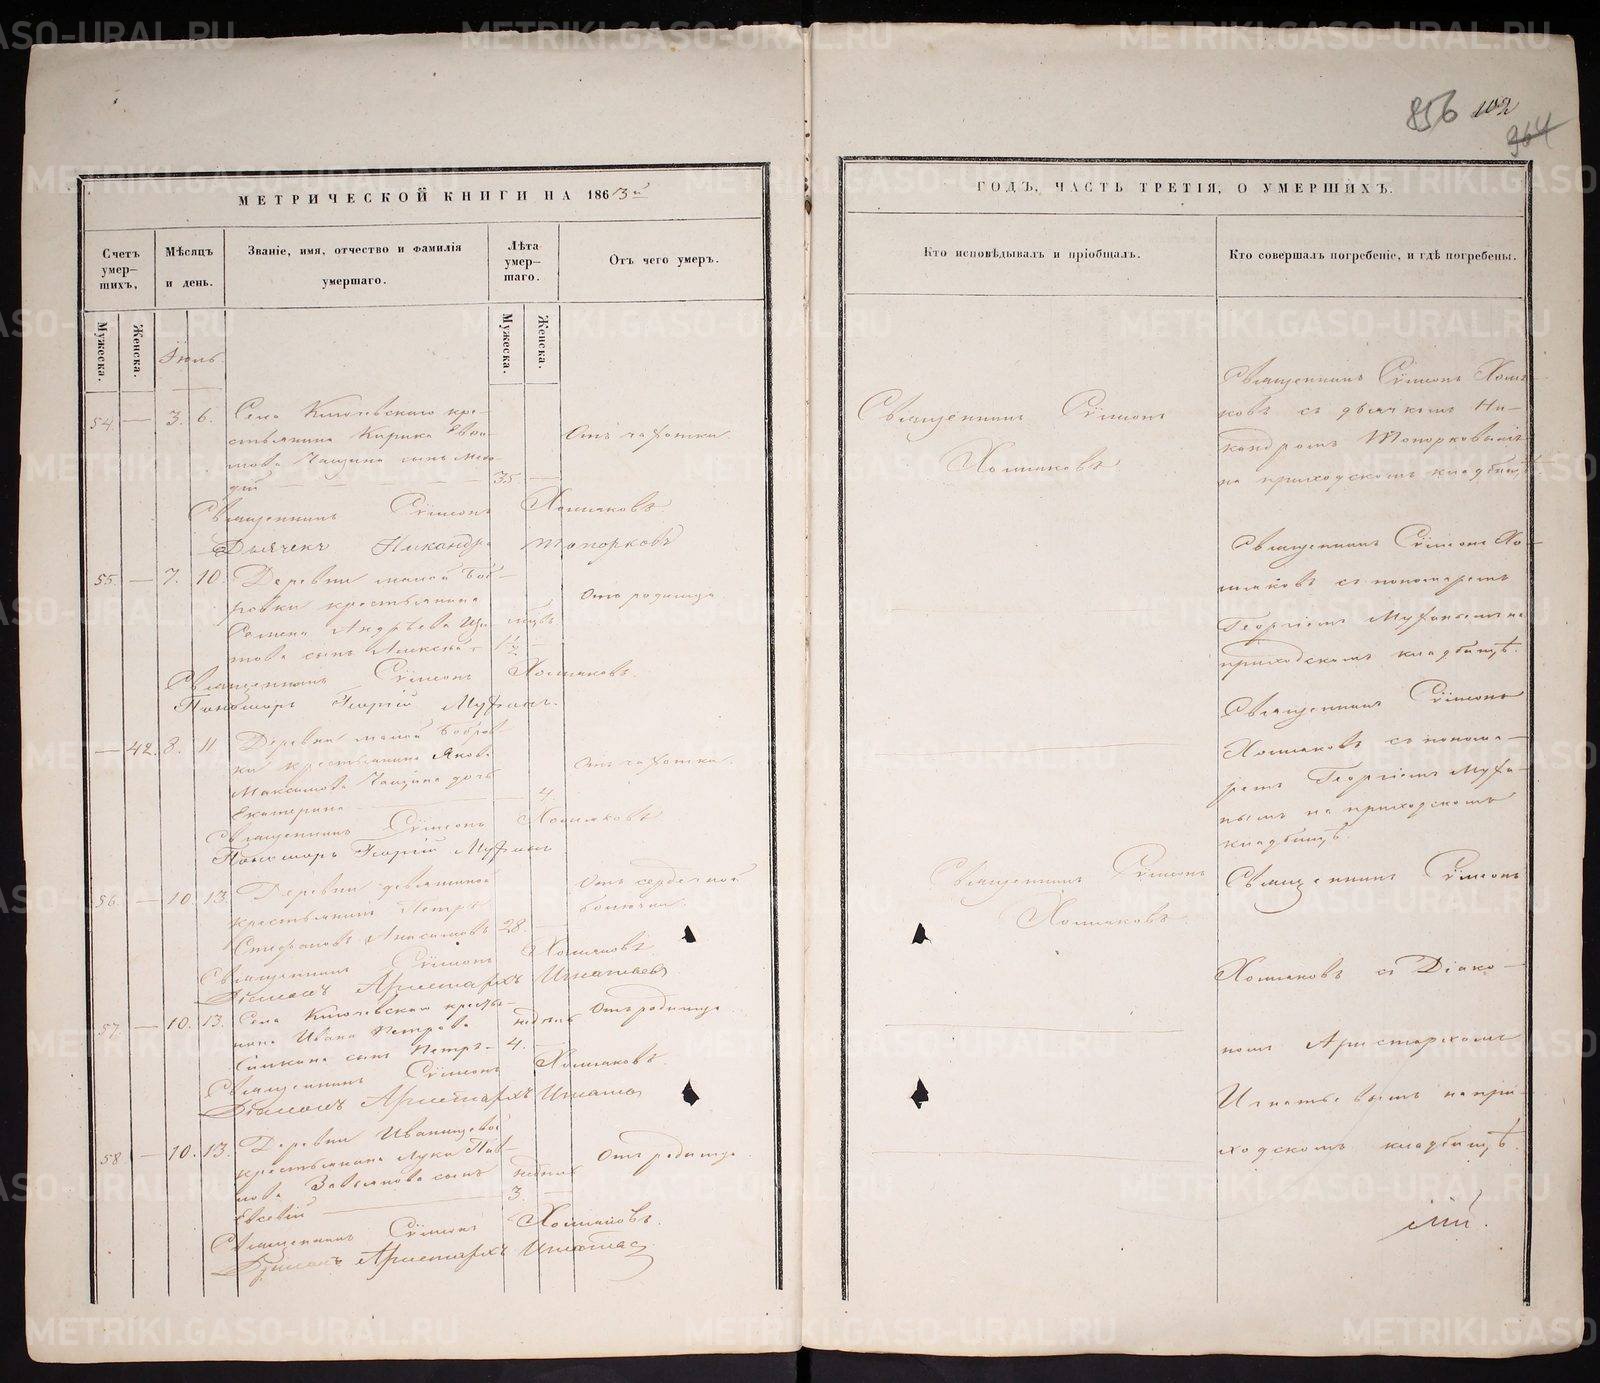 856 102
964
МЕТРИЧЕСКОЙ КНИГИ НА 1863й
ГОДЪ, ЧАСТЬ ТРЕТІЯ, О УМЕРШИХЪ.
Счетъ умер-шихъ,
Мѣсяцъ и день.
Званіе, имя, отчество и фамилія умершаго.
Лѣта умер-шаго.
Отъ чего умеръ.
Кто исповѣдывалъ и пріобщалъ.
Кто совершалъ погребеніе, и гдѣ погребены.
Мужеска.
Женска.
Мужеска.
Женска.
Іюль.
54 — 3. 6. Села Ключевскаго кре-
стьянина Кирика
Чащина сынъ
35 —
Отъ чахотки
Священникъ Симеонъ Хомяковъ
Дьячекъ Никандръ Топорковъ
Священникъ Симеонъ
Хомяковъ
Священникъ Симеонъ Хомя-
ковъ съ дьячкомъ Ни-
кандромъ Топорковымъ
на приходскомъ кладбищѣ.
55. — 7. 10. Деревни малой Боб-
ровки крестьянина
Семена Андреева
сынъ Алексѣй
1½ —
Отъ родимца
Священникъ Симеонъ Хомяковъ.
Пономарь Георгій
Священникъ Симеонъ Хо-
мяковъ съ пономаремъ
Георгіемъ на
приходскомъ кладбищѣ.
— 42. 8. 11. Деревни малой Бобров-
ки крестьянина Якова
Максимова Чащина дочь
Екатерина
4
Отъ чахотки.
Священникъ Симеонъ Хомяковъ
Пономарь Георгій
Священникъ Симеонъ
Хомяковъ съ понома-
ремъ Георгіемъ
на приходскомъ
кладбищѣ.
56. — 10. 13. Деревни
крестьянинъ Петръ
Стефановъ 28 —
Отъ сердечной
болѣзни.
Священникъ Симеонъ Хомяковъ
Діаконъ Аристархъ Игнатьев
Священникъ Симеонъ
Хомяковъ.
Священникъ Симеонъ
Хомяковъ съ Діако-
номъ Аристархомъ
Игнатьевымъ на при-
ходскомъ кладбищѣ.
57. — 10. 13. Села Ключевскаго крестья-
нина Ивана Петрова
сынъ Петръ
недѣль 4. —
Отъ родимца
Священникъ Симеонъ Хомяковъ.
Діаконъ Аристархъ
58 — 10. 13. Деревни
крестьянина Луки Пав-
лова Завьялова сынъ
Евсевій
недѣль 3. —
Отъ родимца
Священникъ Симеонъ Хомяковъ.
Діаконъ Аристархъ